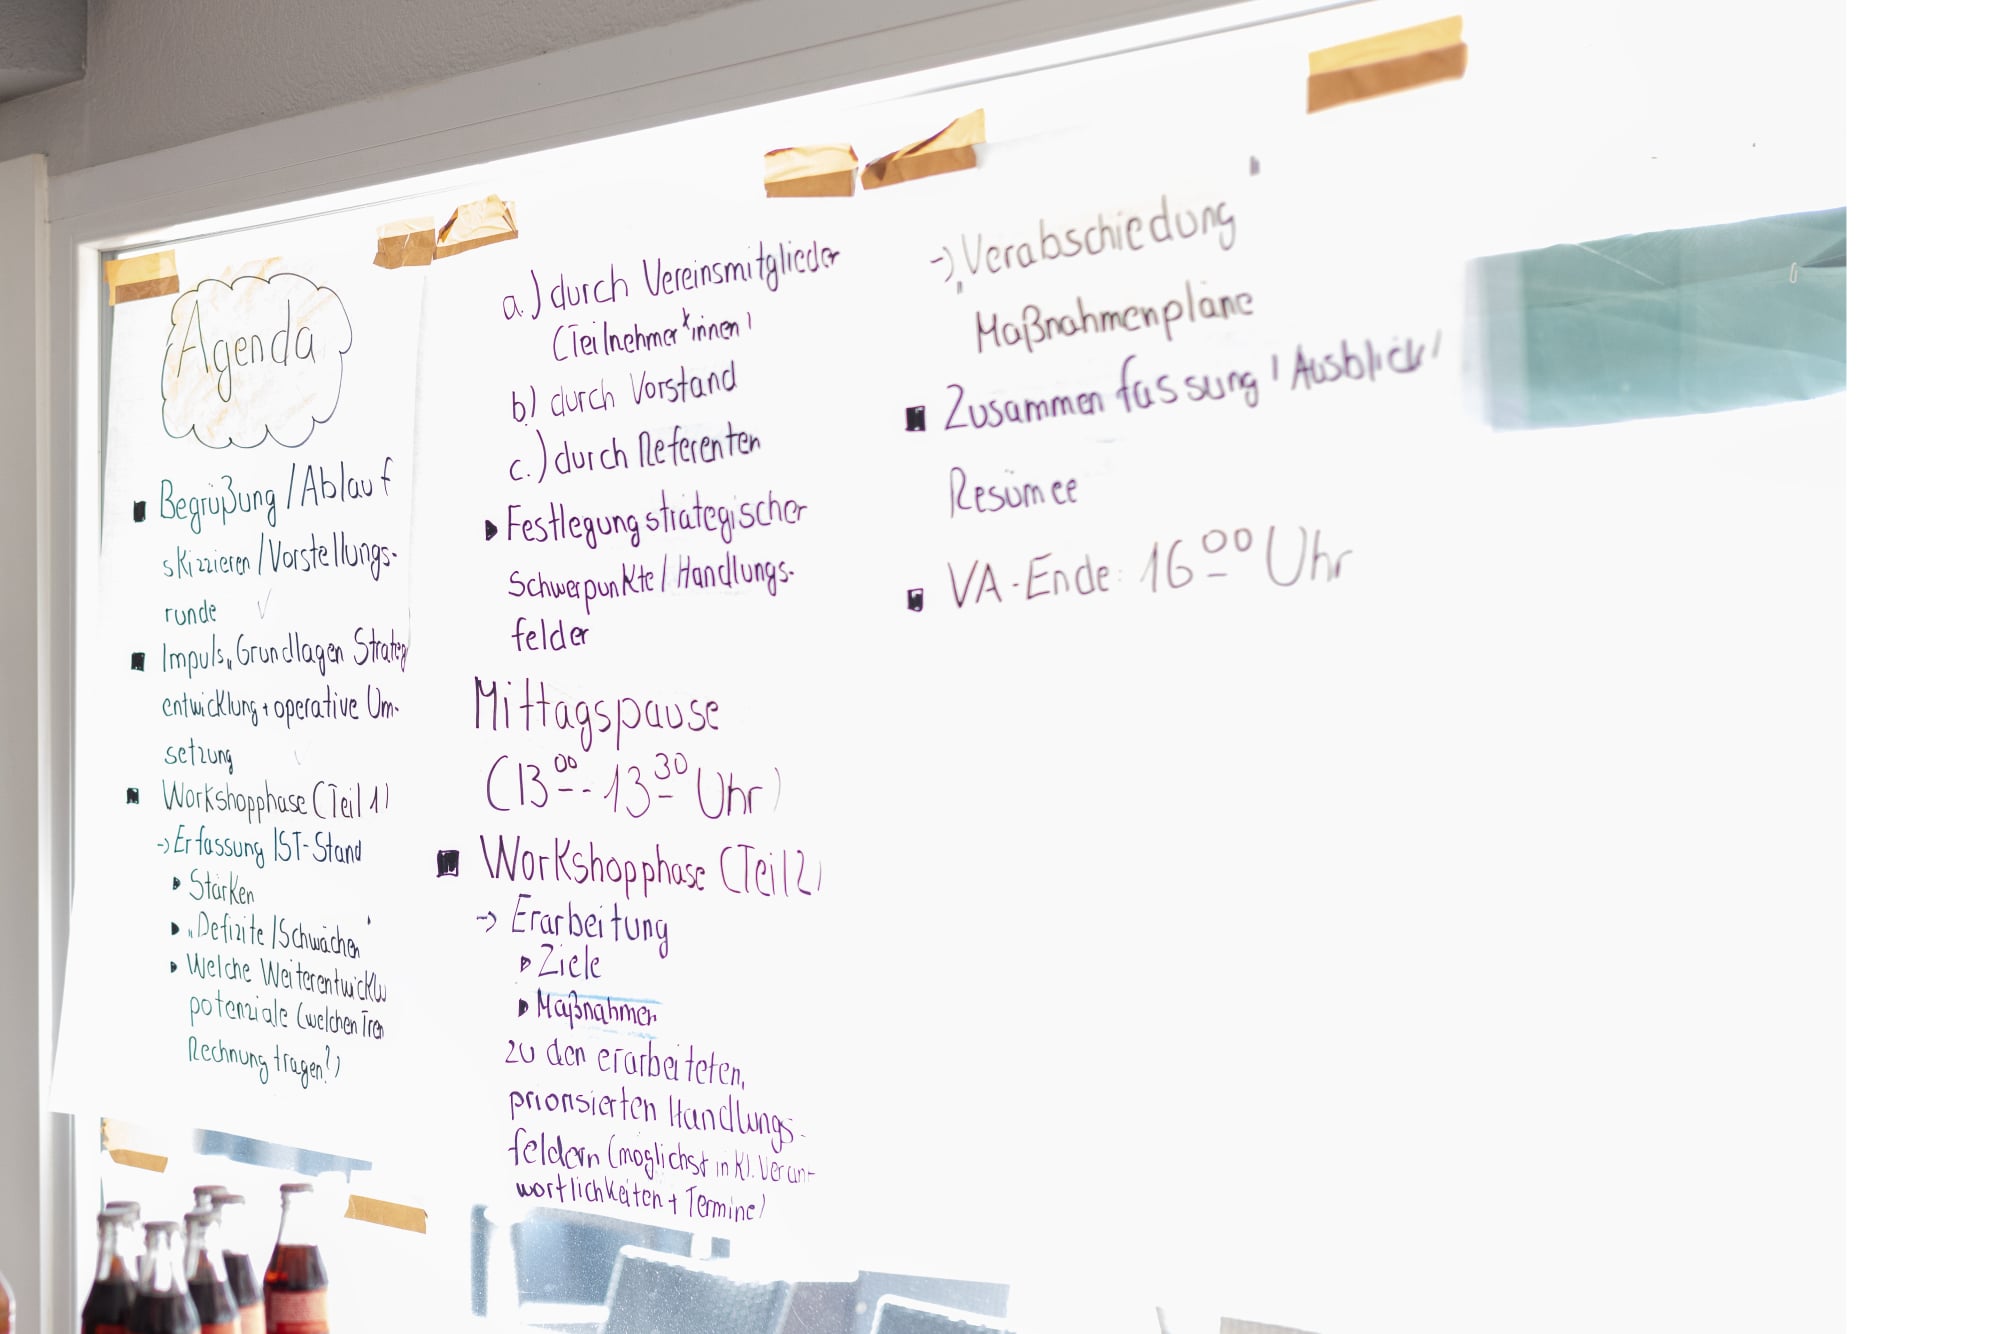 Agenda
■ Begrüßung / Ablauf
skizzieren / Vorstellungs-
runde ✓
■ Impuls „Grundlagen Strateg
entwicklung + operative Um-
setzung ✓
■ Workshopphase (Teil 1)
-> Erfassung IST-Stand
▸ Stärken
▸ „Defizite / Schwächen"
▸ Welche Weiterentwicklu
potenziale (welchen Tren
Rechnung tragen?)
a.) durch Vereinsmitglieder
(Teilnehmer*innen)
b) durch Vorstand
c.) durch Referenten
▸ Festlegung strategischer
Schwerpunkte / Handlungs-
felder
Mittagspause
(13 00 - 13 30 Uhr)
■ Workshopphase (Teil 2)
-> Erarbeitung
▸ Ziele
▸ Maßnahmen
zu den erarbeiteten,
priorisierten Handlungs-
feldern (möglichst inkl. Veran-
wortlichkeiten + Termine)
-> „Verabschiedung"
Maßnahmenpläne
■ Zusammenfassung / Ausblick /
Resümee
■ VA-Ende: 16 00 Uhr